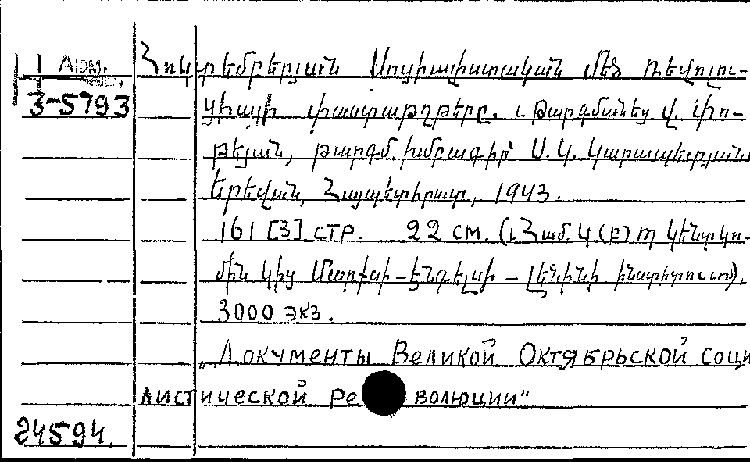 Арм.
3-5793
Հոկտեմբերյան Սոցիալիստական մեծ ռեվոլու-
ցիայի փաստաթղթերը. Թարգմանեց Վ. Փո-
թեյան, թարգմ. խմբագիր Ս. Կ. Կարապետյան
Երեվան, Հայպետհրատ, 1943.
161 [3] стр. 22 см. (Համ. Կ(բ)Պ Կենտկո-
միև կից Մարքսի-Էնգելսի-Լենինի ինստիտուտ).
3000 экз.
"Документы Великой Октябрьской соци
листической ре волюции"
24594.